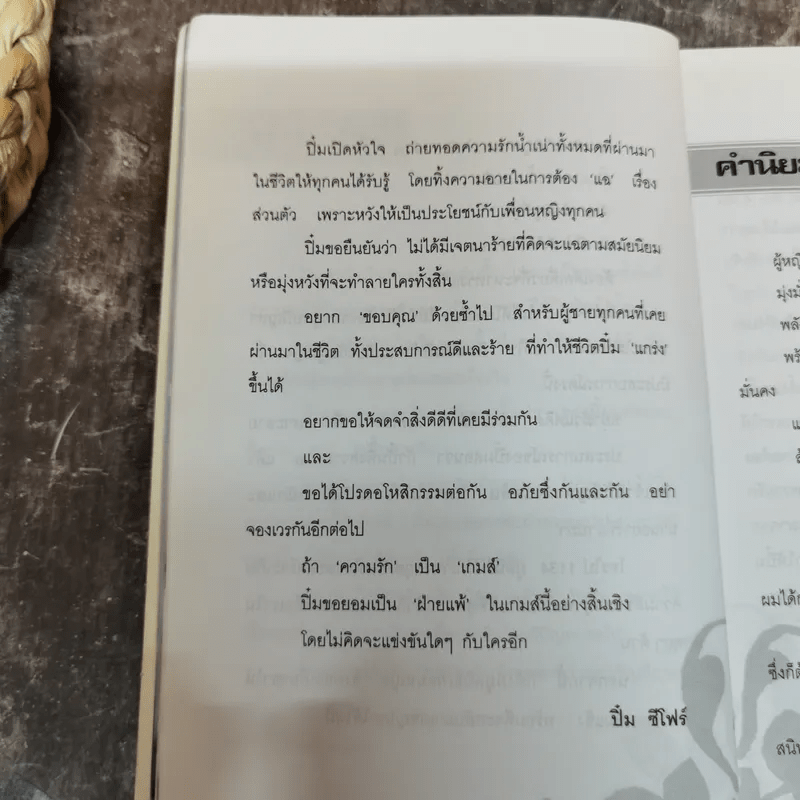 ปิ๋มเปิดหัวใจ ถ่ายทอดความรักน้ำเน่าทั้งหมดที่ผ่านมา
ในชีวิตให้ทุกคนได้รับรู้ โดยทิ้งความอายในการต้อง ‘แฉ’ เรื่อง
ส่วนตัว เพราะหวังให้เป็นประโยชน์กับเพื่อนหญิงทุกคน
ปิ๋มขอยืนยันว่า ไม่ได้มีเจตนาร้ายที่คิดจะแฉตามสมัยนิยม
หรือมุ่งหวังที่จะทำลายใครทั้งสิ้น
อยาก ‘ขอบคุณ’ ด้วยซ้ำไป สำหรับผู้ชายทุกคนที่เคย
ผ่านมาในชีวิต ทั้งประสบการณ์ดีและร้าย ที่ทำให้ชีวิตปิ๋ม ‘แกร่ง’
ขึ้นได้
อยากขอให้จดจำสิ่งดีดีที่เคยมีร่วมกัน
และ
ขอได้โปรดอโหสิกรรมต่อกัน อภัยซึ่งกันและกัน อย่า
จองเวรกันอีกต่อไป
ถ้า ‘ความรัก’ เป็น ‘เกมส์’
ปิ๋มขอยอมเป็น ‘ฝ่ายแพ้’ ในเกมส์นี้อย่างสิ้นเชิง
โดยไม่คิดจะแข่งขันใดๆ กับใครอีก
ปิ๋ม ซีโฟร์
คำนิย
ผู้หญิ
มุ่งมั
พลั
พร้
มั่นคง
แ
ผมได้
ซึ่งก็ต้
สนิ